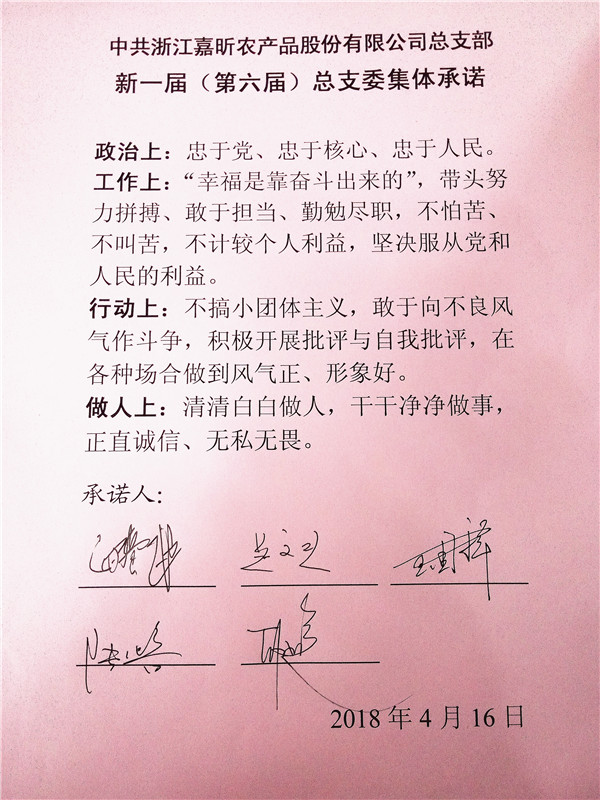 中共浙江嘉昕农产品股份有限公司总支部
新一届（第六届）总支委集体承诺
政治上：忠于党、忠于核心、忠于人民。
工作上：“幸福是靠奋斗出来的”，带头努
力拼搏、敢于担当、勤勉尽职，不怕苦、
不叫苦，不计较个人利益，坚决服从党和
人民的利益。
行动上：不搞小团体主义，敢于向不良风
气作斗争，积极开展批评与自我批评，在
各种场合做到风气正、形象好。
做人上：清清白白做人，干干净净做事，
正直诚信、无私无畏。
承诺人：
2018 年 4 月 16 日